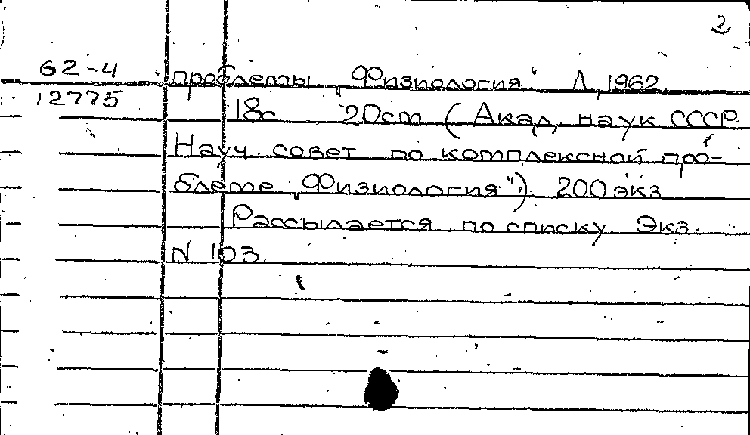 2
62-4
12775
проблемы „Физиология" Л, 1962
18с 20cm (Акад. наук СССР.
Науч. совет по комплексной про-
блеме „Физиология"). 200 экз
Рассылается по списку. Экз.
N 103